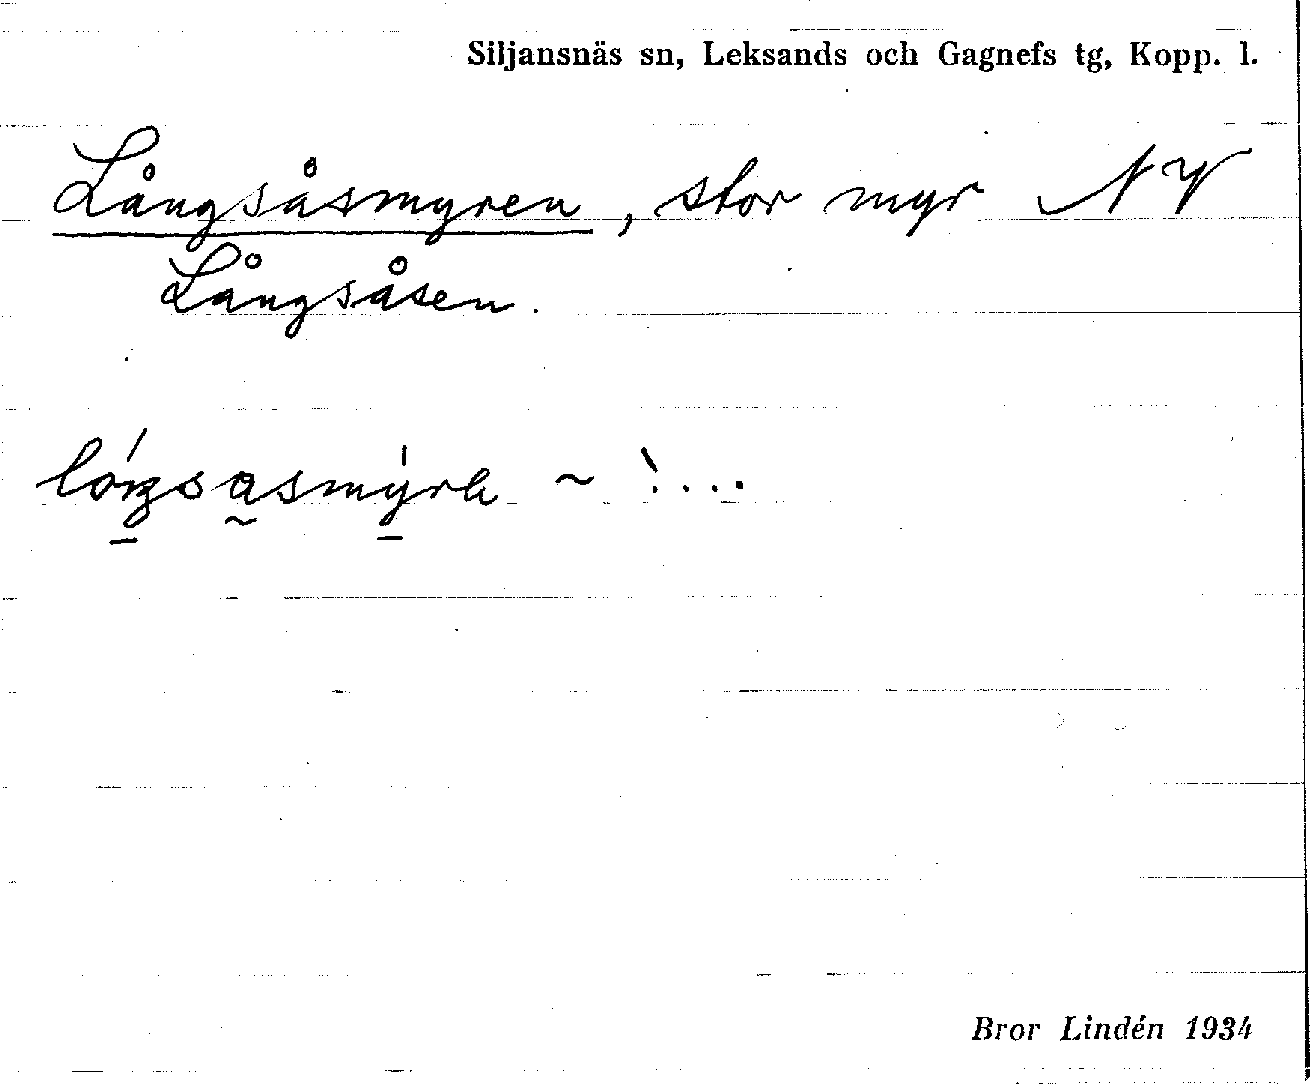 Siljansnäs sn, Leksands och Gagnefs tg, Kopp. l.
Långsåsmyren, stor myr NV
Långsåsen.
~ \ . . . .
Bror Lindén 1934